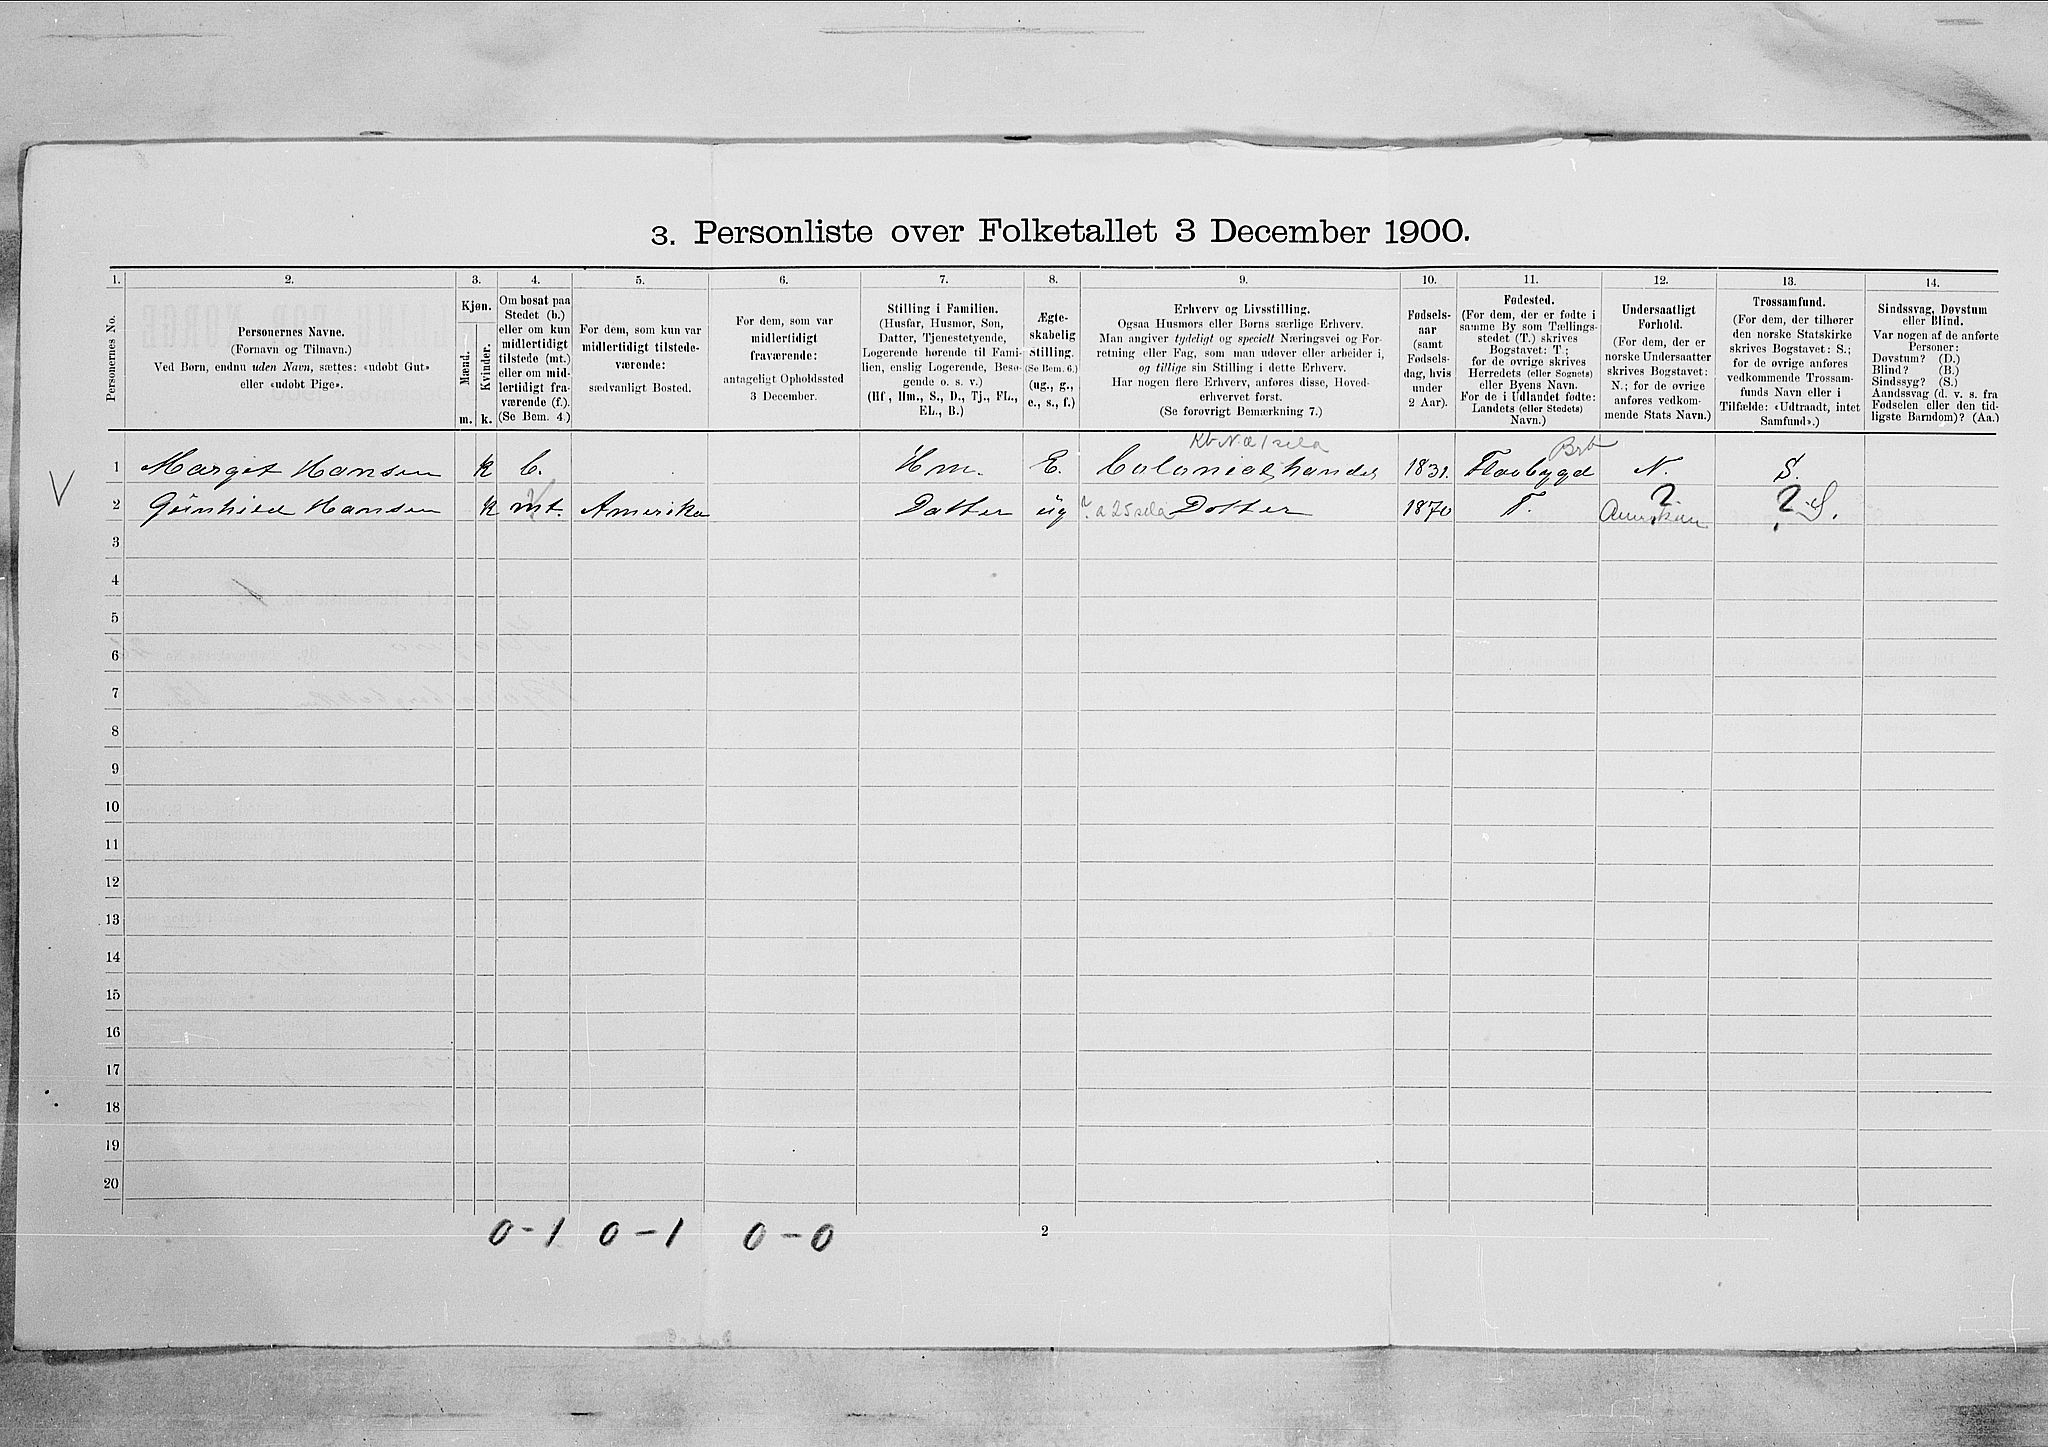 3. Personliste over Folketallet 3 December 1900.
1. 2. 3. 4. 5. 6. 7. 8. 9. 10. 11. 12. 13. 14.
Personernes No.
Personernes Navne.
(Fornavn og Tilnavn.)
Ved Børn, endnu uden Navn, sættes: «udøbt Gut»
eller «udøbt Pige».
Kjøn.
Mænd.
Kvinder.
m. k.
Om bosat paa
Stedet (b.)
eller om kun
midlertidigt
tilstede (mt.)
eller om mid-
lertidigt fra-
værende (f.).
(Se Bem. 4.)
For dem, som kun var
midlertidigt tilstede-
værende:
sædvanligt Bosted.
For dem, som var
midlertidigt
fraværende:
antageligt Opholdssted
3 December.
Stilling i Familien.
(Husfar, Husmor, Søn,
Datter, Tjenestetyende,
Logerende hørende til Fami-
lien, enslig Logerende, Besø-
gende o. s. v.)
(Hf., Hm., S., D., Tj., FL.,
EL., B.)
Ægte-
skabelig
Stilling.
(Se Bem. 6.)
(ug., g.,
e., s., f.)
Erhverv og Livsstilling.
Ogsaa Husmors eller Børns særlige Erhverv.
Man angiver tydeligt og specielt Næringsvei og For-
retning eller Fag, som man udøver eller arbeider i,
og tillige sin Stilling i dette Erhverv.
Har nogen flere Erhverv, anføres disse, Hoved-
erhvervet først.
(Se forøvrigt Bemærkning 7.)
Fødsels-
aar
(samt
Fødsels-
dag, hvis
under
2 Aar).
Fødested.
(For dem, der er fødte i
samme By som Tællings-
stedet (T.) skrives
Bogstavet: T.;
for de øvrige skrives
Herredets (eller Sognets)
eller Byens Navn.
For de i Udlandet fødte:
Landets (eller Stedets)
Navn.)
Undersaatligt
Forhold.
(For dem, der er
norske Undersaatter
skrives Bogstavet:
N.; for de øvrige
anføres vedkom-
mende Stats Navn.)
Trossamfund.
(For dem, der tilhører
den norske Statskirke
skrives Bogstavet: S.;
for de øvrige anføres
vedkommende Trossam-
funds Navn eller i
Tilfælde: «Udtraadt, intet
Samfund».)
Sindssvag, Døvstum
eller Blind.
Var nogen af de anførte
Personer:
Døvstum? (D.)
Blind? (B.)
Sindssyg? (S.)
Aandssvag (d. v. s. fra
Fødselen eller den tid-
ligste Barndom)? (Aa.)
1 Marget Hansen k b. Hm. E. Colonialhandel 1831. Flaabygd N. S.
V
2 Günhild Hansen k mt. Amerika Datter üg Datter 1870 T. ? ? S.
3
4
5
6
7
8
9
10
11
12
13
14
15
16
17
18
19
20
0-1 0-1 0-0 2